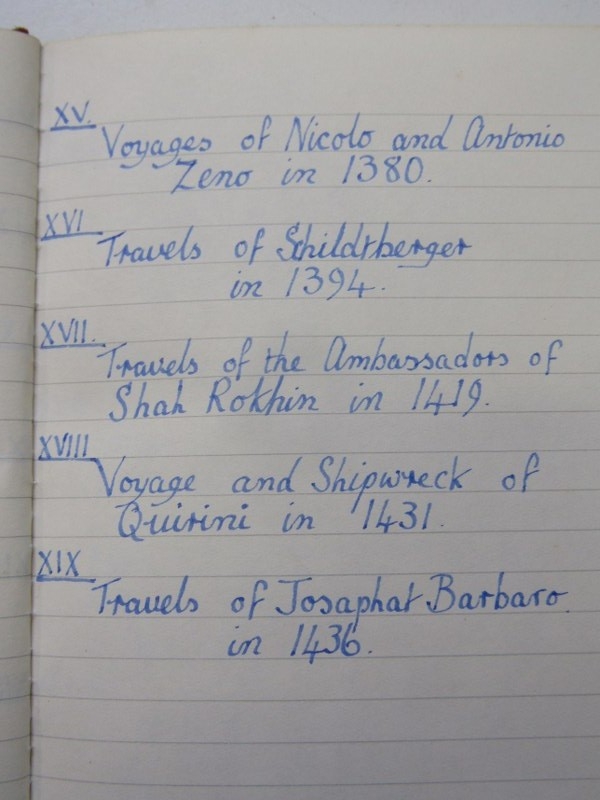 XV.
Voyages of Nicolo and Antonio
Zeno in 1380.
XVI
Travels of Schildtberger
in 1394.
XVII.
Travels of the Ambassadors of
Shah Rokhin in 1419.
XVIII
Voyage and Shipwreck of
Quirini in 1431.
XIX
Travels of Josaphat Barbaro.
in 1436.